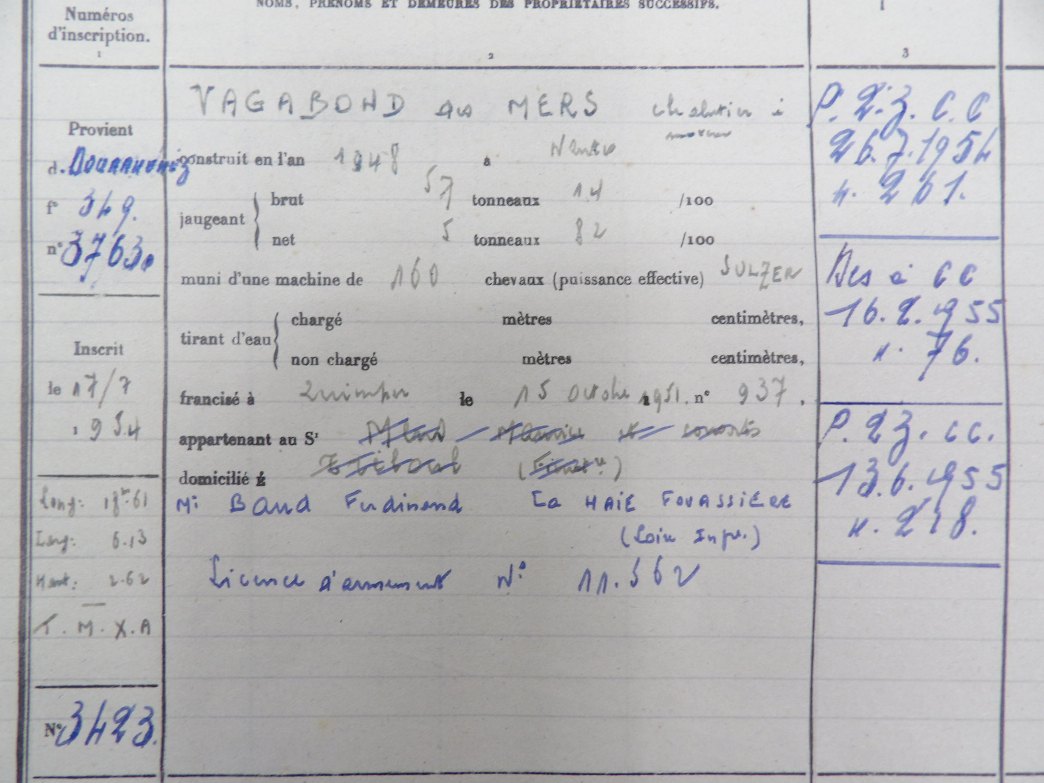 NOMS, PRÉNOMS ET DEMEURES DES PROPRIÉTAIRES SUCCESSIFS.
Numéros
d'inscription.
1
2
3
Provient
d. Douarnenez
f° 349.
n° 3763.
Inscrit
le 17/7
1954
Long: 18m.61
Larg: 6.13
Haut: 2.62
T. M. X. A
N° 3423.
VAGABOND des MERS chalutier à
moteur
construit en l'an 1948 à Nantes
jaugeant
brut 57 tonneaux 14 /100
net 5 tonneaux 82 /100
muni d'une machine de 160 chevaux (puissance effective) SULZER
tirant d'eau
chargé mètres centimètres,
non chargé mètres centimètres,
francisé à Quimper le 15 Octobre 1951. n° 937.
appartenant au Sr
domicilié à
Mr Baud Ferdinand La HAIE FOUASSIÈRE
(Loire Infre.)
Licence d'armement N° 11.562
P. 23. C.C
26.7.1954
n. 261.
Des à CC
16.2.1955
n. 76.
P. 23. CC.
13.6.1955
n. 218.